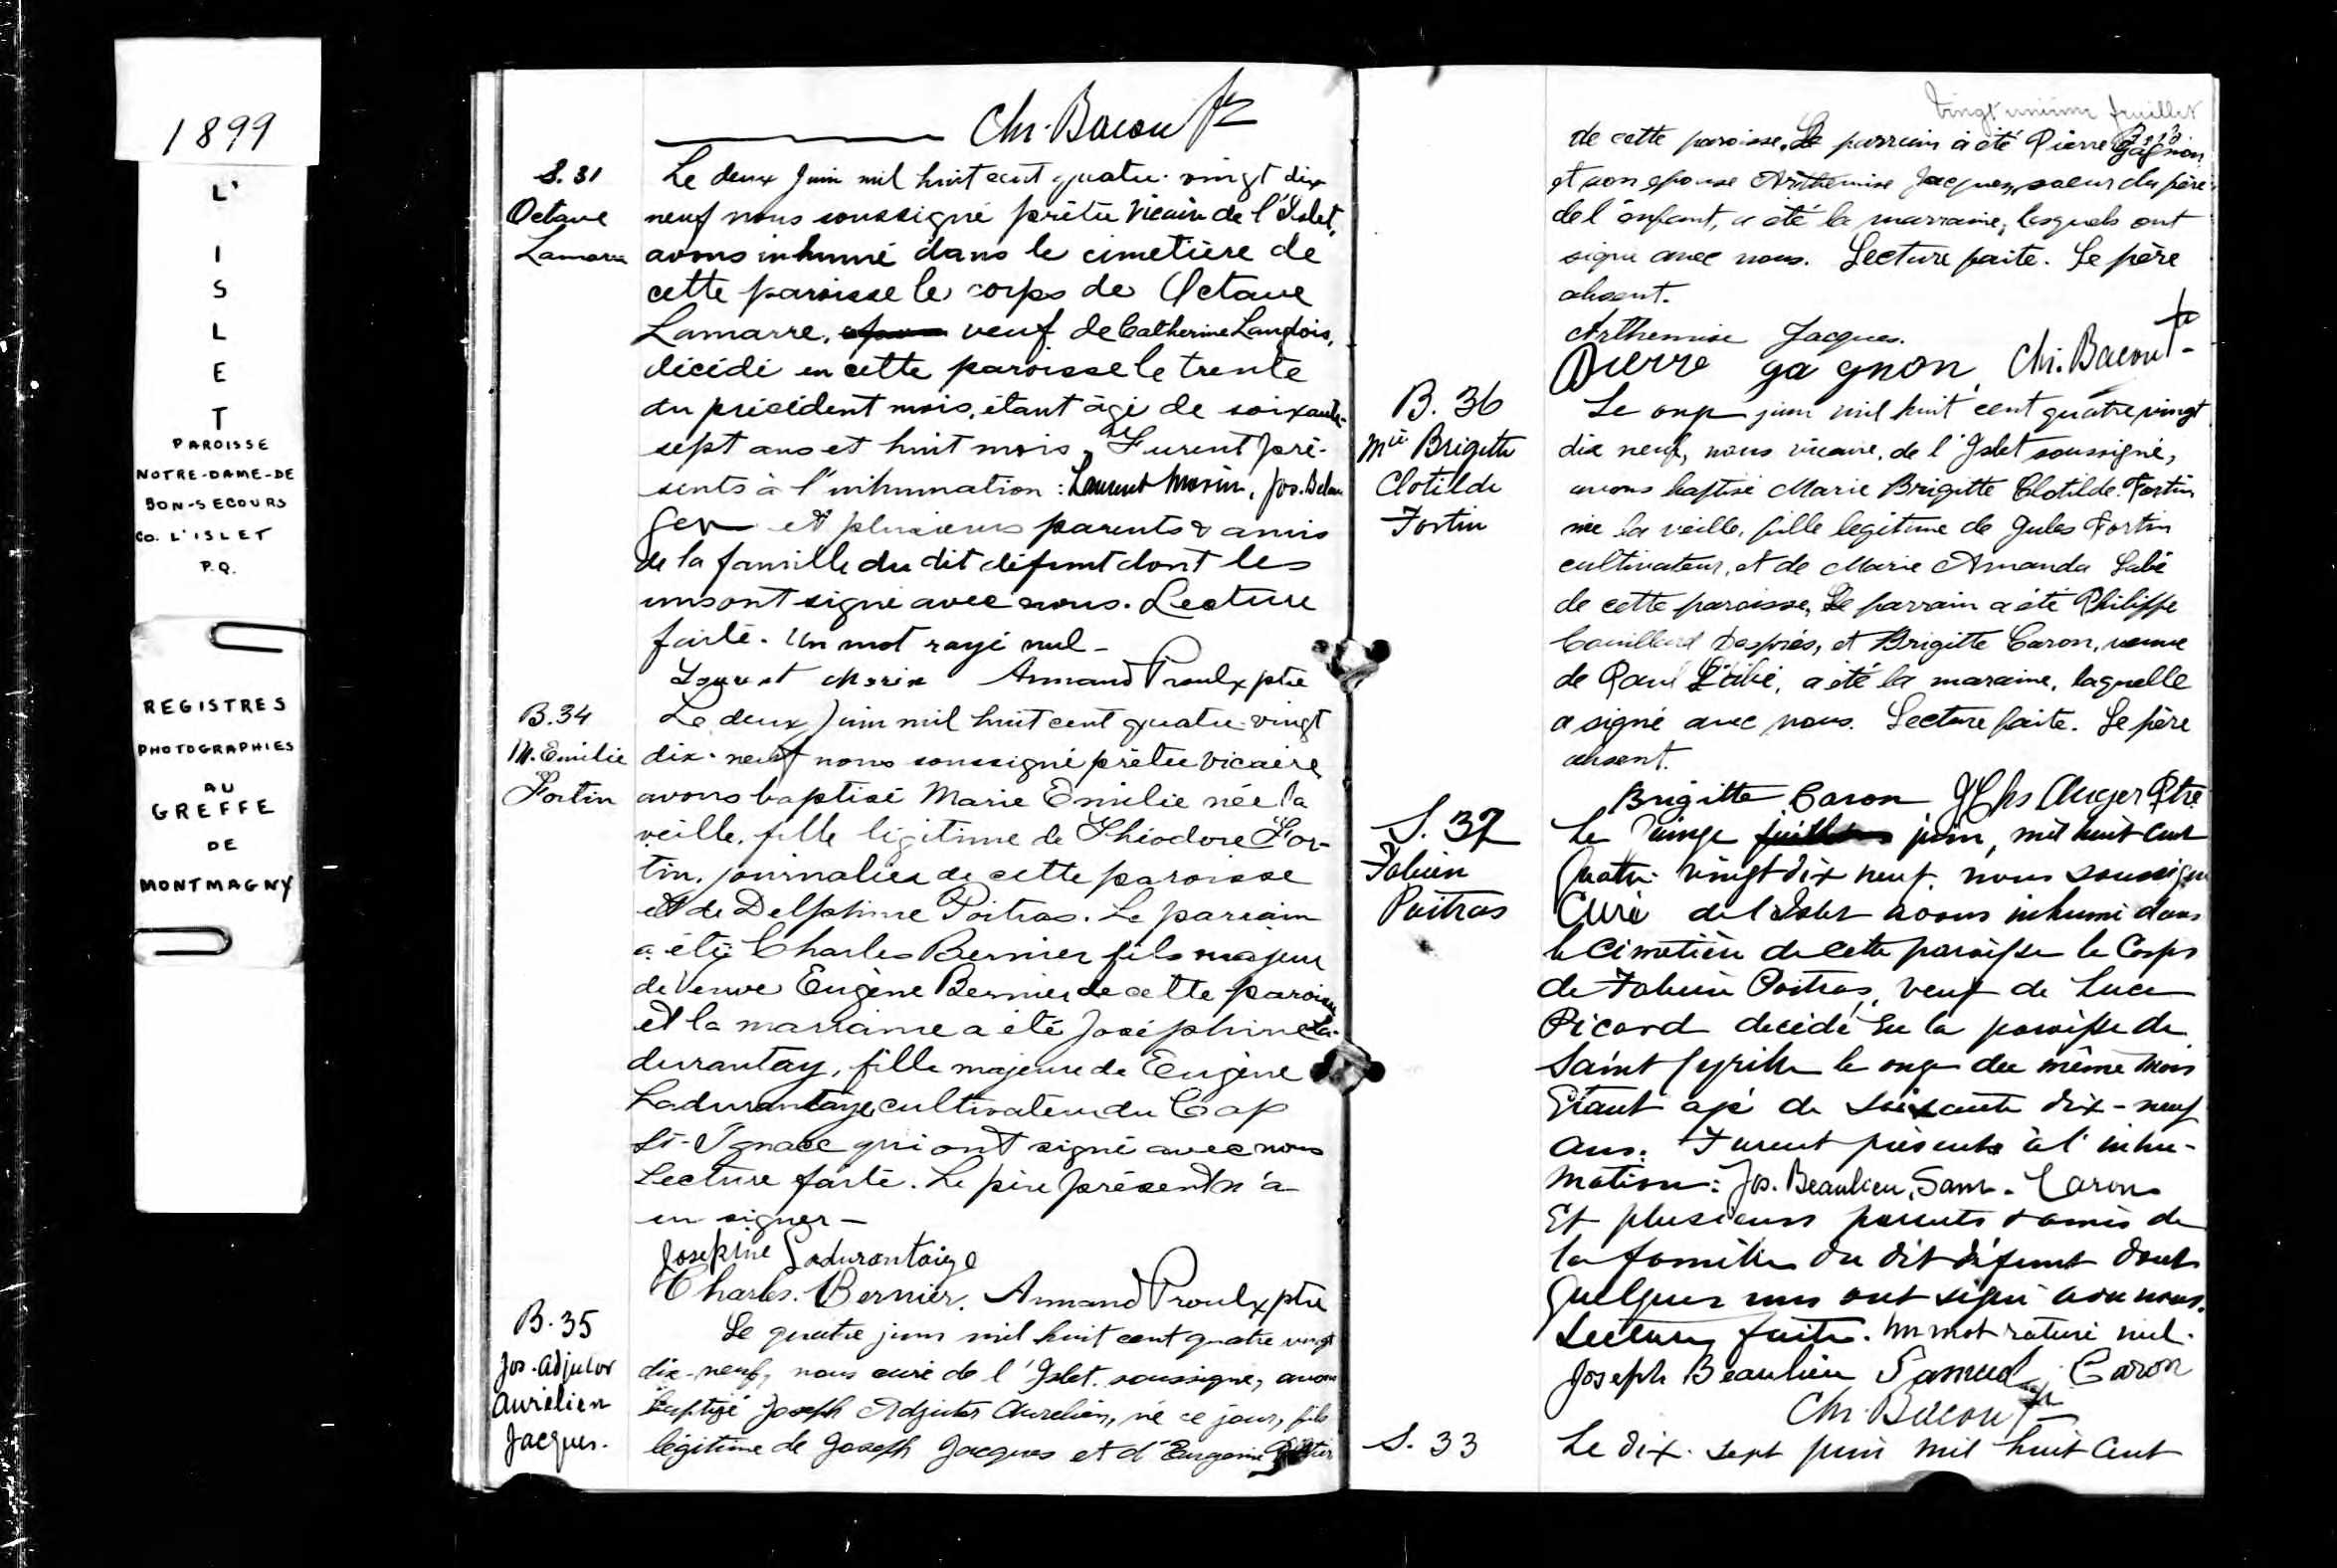 1899
L'
I
S
L
E
T
PAROISSE
NOTRE-DAME-DE
BON-SECOURS
Co. L'ISLET
P.Q.
REGISTRES
PHOTOGRAPHIES
AU
GREFFE
DE
MONTMAGNY
Chs. Bacon Ptre
S. 31
Octave
Lamarre
Le deux Juin mil huit cent quatre-vingt dix
neuf nous soussigné prêtre Vicaire de l'Islet,
avons inhumé dans le cimetière de
cette paroisse le corps de Octave
Lamarre, veuf de Catherine Langlois,
décédé en cette paroisse le trente
du précédent mois, étant âgé de soixante-
sept ans et huit mois. Furent pré-
sents à l'inhumation: Laurent Morin, Jos. Belan
ger et plusieurs parents & amis
de la famille du dit défunt dont les
uns ont signé avec nous. Lecture
faite. Un mot rayé nul-
Laurent Morin Armand Proulx ptre
B. 34
M. Emilie
Fortin
Le deux Juin mil huit cent quatre-vingt
dix-neuf nous soussigné prêtre vicaire
avons baptisé Marie Emilie née la
veille, fille légitime de Théodore For-
tin, journalier de cette paroisse
et de Delphine Poitras. Le parrain
a été Charles Bernier fils majeur
de veuve Eugène Bernier de cette paroisse
et la marraine a été Joséphine La-
durantay, fille majeure de Eugène
Ladurantaye cultivateur du Cap
St-Ignace qui ont signé avec nous
Lecture faite. Le père présent n'a
su signer-
Josephine Ladurantaige
Charles. Bernier. Armand Proulx ptre
B. 35
Jos. Adjutor
Aurélien
Jacques.
Le quatre juin mil huit cent quatre vingt
dix-neuf, nous curé de l'Islet soussigné, avons
baptisé Joseph Adjutor Aurelien, né ce jour, fils
légitime de Joseph Jacques et d'Eugénie
Vingt unième feuillet
de cette paroisse. Le parrain a été Pierre Gagnon
et son épouse Arthémise Jacques, soeur du père
de l'enfant, a été la marraine, lesquels ont
signé avec nous. Lecture faite. Le père
absent.
Arthemise Jacques.
Pierre gagnon, Chs. Bacon Ptre
B. 36
Mie Brigitte
Clotilde
Fortin
Le onze juin mil huit cent quatre vingt
dix neuf, nous vicaire, de l'Islet soussigné,
avons baptisé Marie Brigitte Clotilde Fortin
née la veille, fille légitime de Jules Fortin
cultivateur, et de Marie Amanda Labé
de cette paroisse, Le parrain a été Philippe
Couillard Després, et Brigitte Caron, veuve
de Paul Labé, a été la maraine, laquelle
a signé avec nous. Lecture faite. Le père
absent.
Brigitte Caron Auger Ptre
S. 32
Fabien
Poitras
Le juin, mil huit cent
quatre-vingt dix neuf. nous soussigné
Curé de l'Islet avons inhumé dans
le cimetière de cette paroisse le Corps
de Fabien Poitras, veuf de Luce
Picard décédé en la paroisse de
Saint Cyrille le onze du même mois
Etant agé de soixante dix-neuf
ans. Furent présents à l'inhu-
mation: Jos. Beaulieu, Sam. Caron
Et plusieurs parents & amis de
la famille du dit défunt dont
quelques uns ont signé avec nous.
Lecture faite. Un mot raturé nul.
Joseph Beaulieu Samuel Caron
Chs. Bacon Ptre
S. 33
Le dix-sept juin mil huit cent